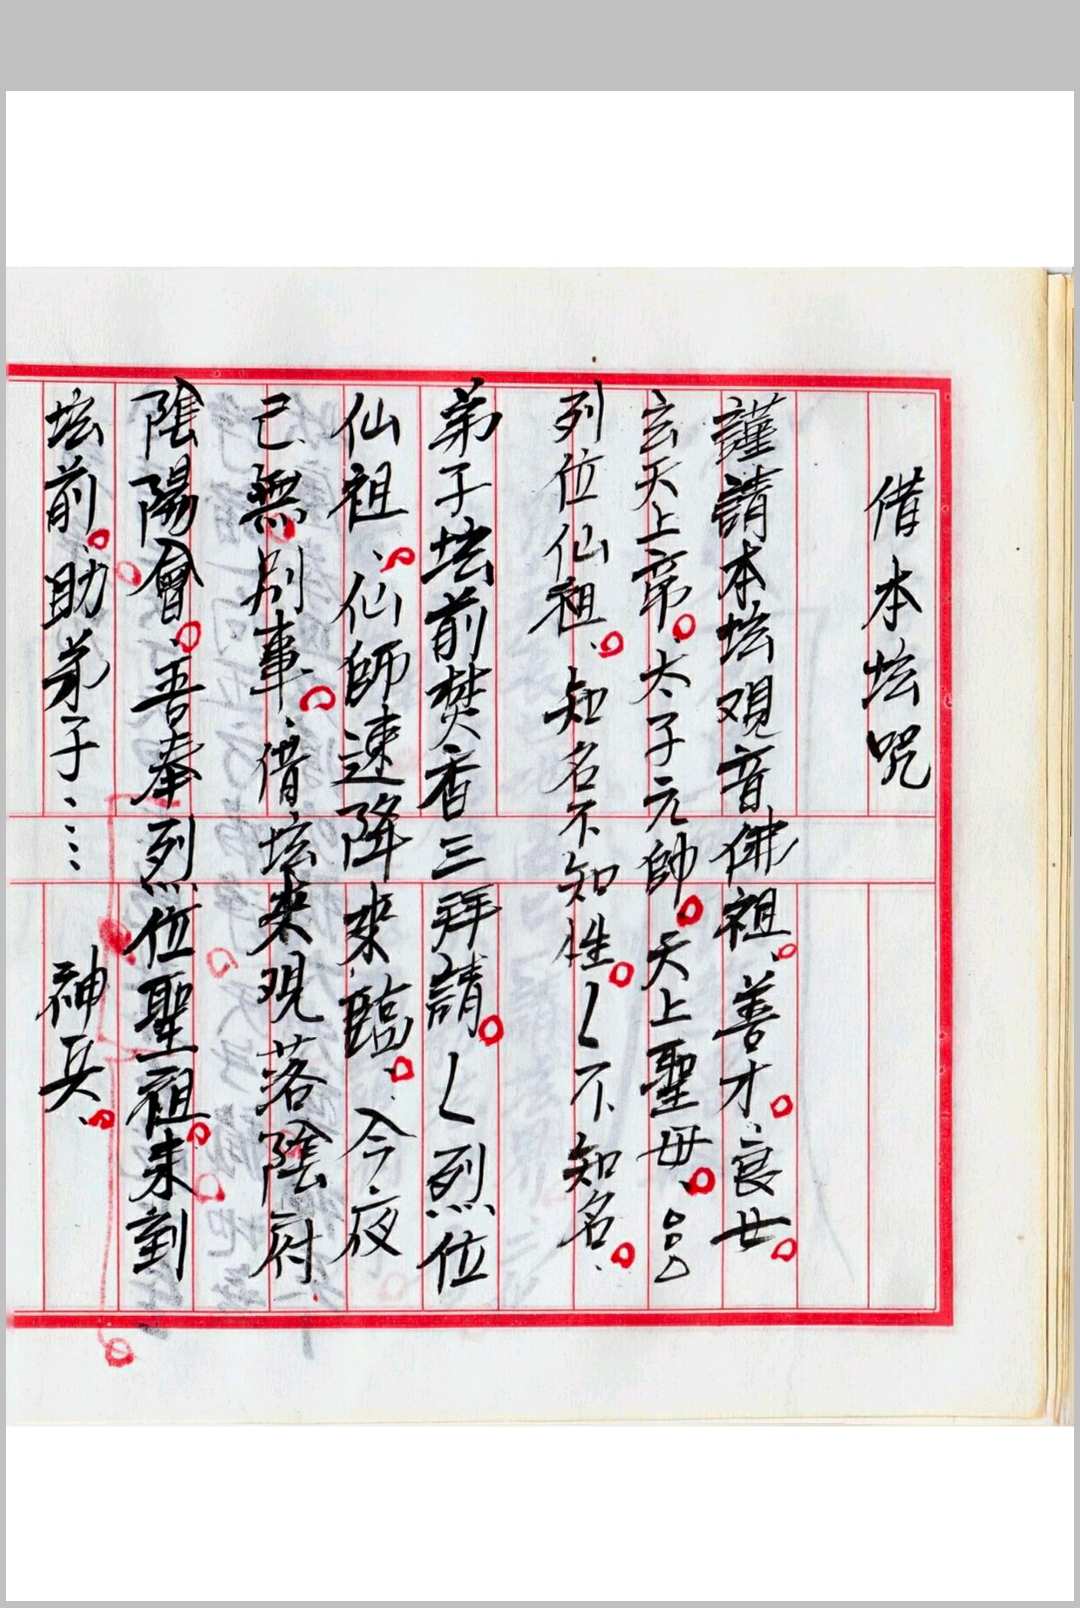 借本坛咒
謹請本坛观音佛祖、善才、良女、
玄天上帝、太子元帥、天上聖母、
列位仙祖、知名不知姓く不知名、
弟子坛前焚香三拜請く烈位
仙祖、仙師速降來臨、今夜
己無别事、借坛來观落陰府
陰陽會、吾奉烈位聖祖未到
坛前、助弟子⋮⋮神兵、